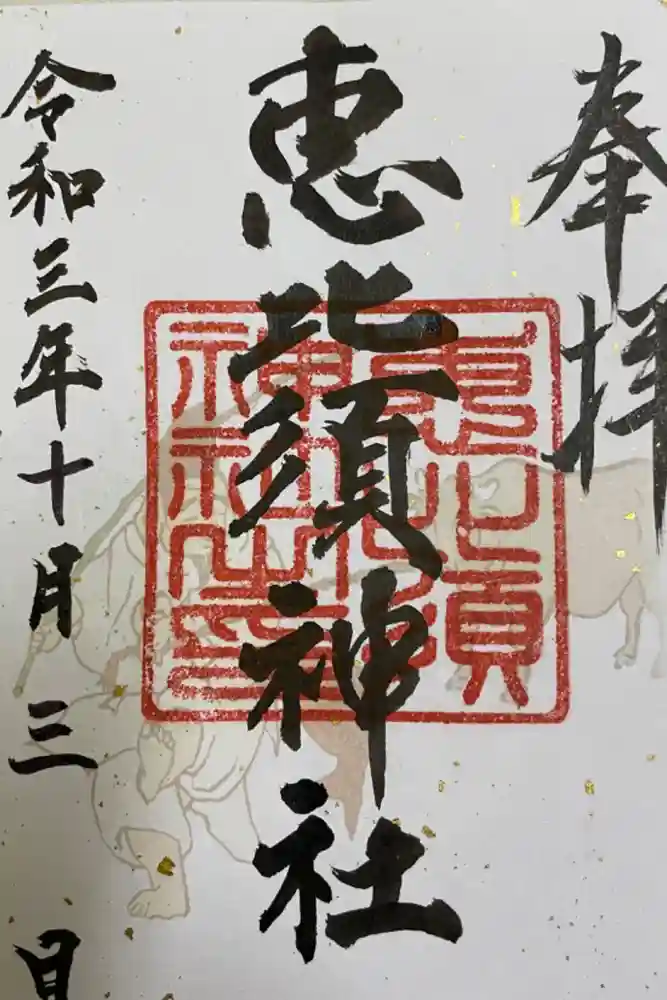 奉拝
恵比須神社
恵比須
神社之印
令和三年十月三日